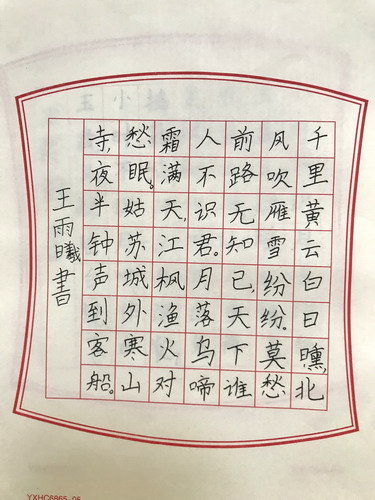 千里黄云白日曛,北
风吹雁雪纷纷。莫愁
前路无知已,天下谁
人不识君。月落乌啼
霜满天,江枫渔火对
愁眠。姑苏城外寒山
寺,夜半钟声到客船。
王雨曦書